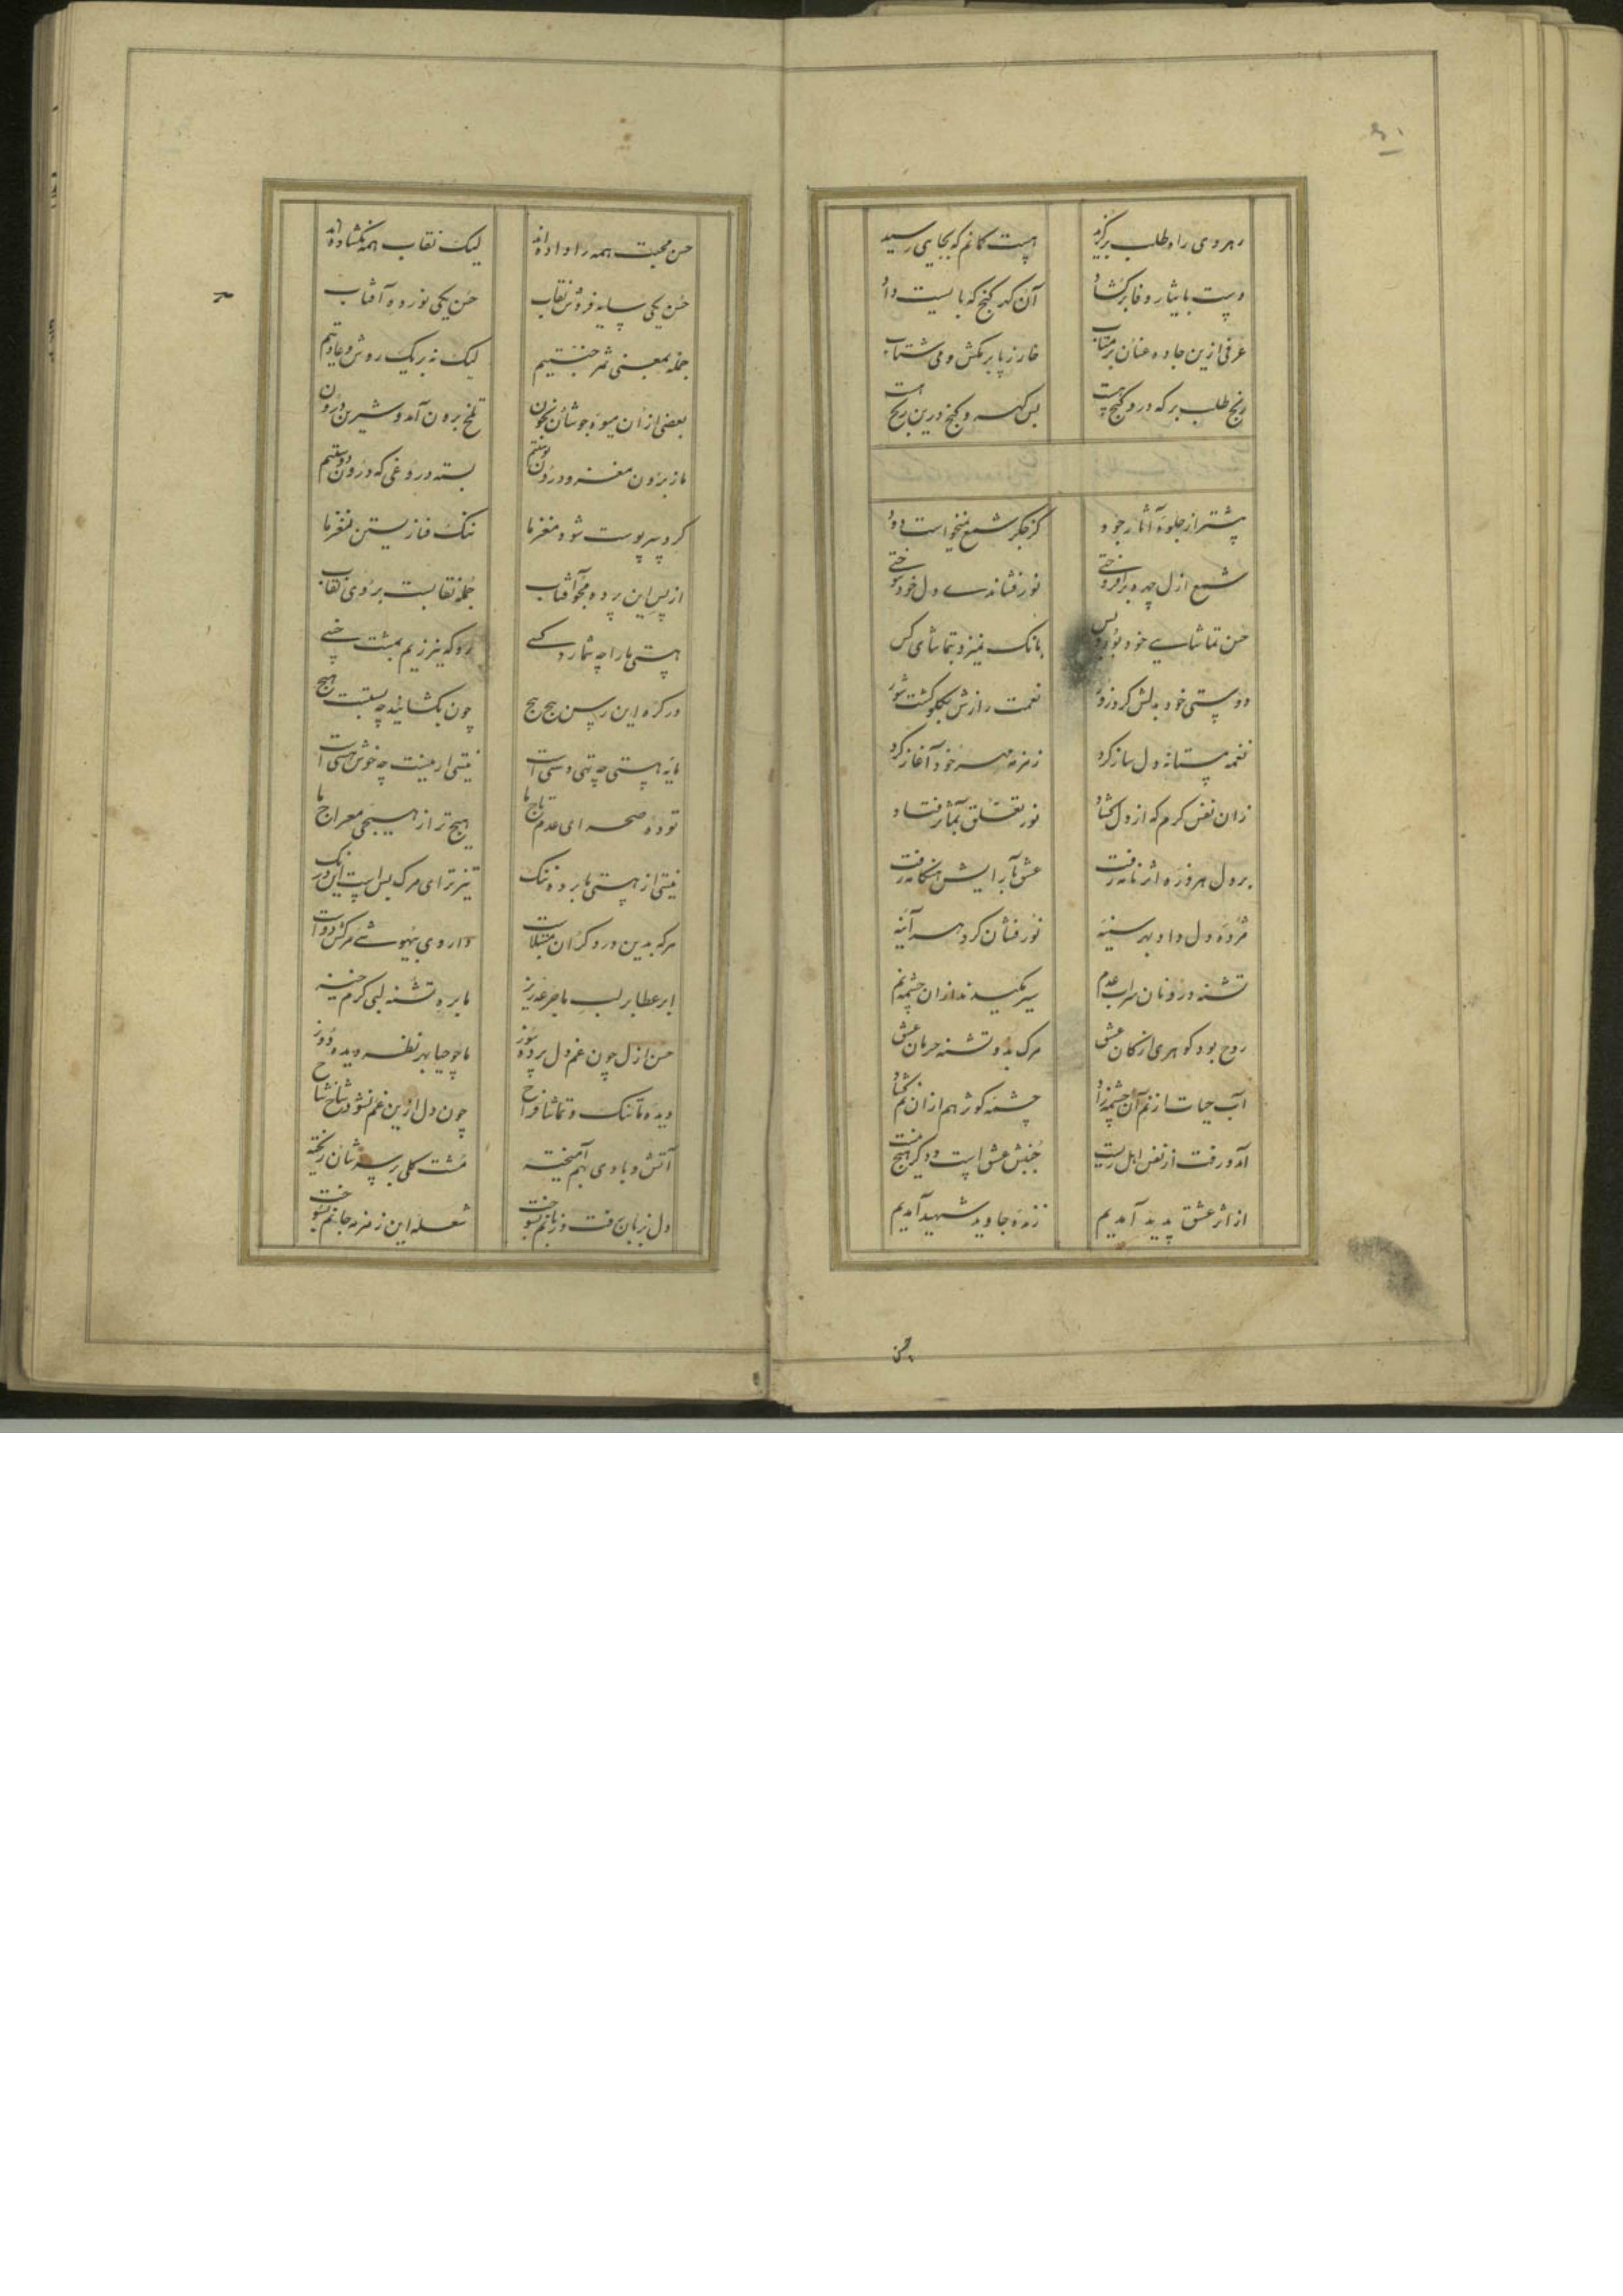 رهروی راه طلب برگزید هست گمانم که بجایی رسید
دست بایثار و فا برگشاد آن گهر گنج که بایست داد
عرفی ازین جاده عنان برمتاب خار ز پا برمکش و می شتاب
رنج طلب بر که درو گنج هست بس گهر و گنج درین رنج هست
پیشتر از جلوه آثار جود کز جگر شمع نمیخواست دود
شمع ازل چهره برافروختی نور فشاندی و دل خود سوختی
حسن تماشایی خود بود و بس بانک نمیزد بتماشای کس
دوستی خود بدلش کرد زور نعمت رازش بگلو گشت شور
نغمه مستانه دل ساز کرد زمزمه مهر خود آغاز کرد
زان نفس گرم که از دل گشاد نور تعلق بمآثر فتاد
بر دل هر ذره اثر نامه رفت عشق بآرایش هنگامه رفت
مژده دل داد بهر سینه نور فشان کرد هر آئینه
تشنه درونان سراب عدم سیر مکیدند ازان چشمه نم
روح بود گوهری از کان عشق مرگ بود تشنه حرمان عشق
آب حیات از نم آن چشمه زاد چشمه کوثر هم ازان نم گشاد
آمد و رفت از نفس اهل زیست جنبش عشق است و دگر هیچ نیست
از اثر عشق پدید آمدیم زنده جاوید شهید آمدیم
حسن
حسن محبت همه را داده اند لیک نقاب همه نگشاده اند
حسن یکی سایه فروش نقاب حسن یکی نور ده آفتاب
جمله بمعنی ثمر جنتیم لیک نه بر یک روش و عادتیم
بعضی ازان میوه جوشان بخون تلخ برون آمد و شیرین درون
ما ز برون مغز و درون پوستیم بسته دروغی که درون دوستیم
گرد سر پوست شود مغز ما ننگ فنا زیستن نغز ما
از پس این پرده مجو آفتاب جمله نقابست بروی نقاب
هستی ما را چه شمارد کسی رو که نیرزیم بمشت خسی
در گره این رسن هیچ هیچ چون بگشائید چه بستست هیچ
مایه هستی چه تهی دستی است نیستی ار نیست چه خوش هستی است
توده صحرای عدم تاج ما هیچ تر از هیچی معراج ما
نیستی از هستی ما برده ننگ تیزتر ای مرگ بس است این درنگ
هر که بدین درد گران مبتلاست داروی بیهوشی مرگش دواست
ابر عطا بر لب ما جرعه ریز ما بره تشنه لبی گرم خیز
حسن ازل چون غم دل پرده سوز ما چو حیا بهر نظر دیده دوز
دیده ما تنگ و تماشا فراخ چون دل ازین غم نشود شاخ شاخ
آتش و بادی بهم آمیخته مشت گلی بر سرشان ریخته
دل بزبان رفت و زبانم بسوخت شعله این زمزمه جانم بسوخت